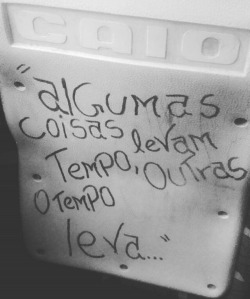 CAIO
"alGUMAS
COISAS levam
TEMPO, OUTRAS
O TEMPO
leva..."